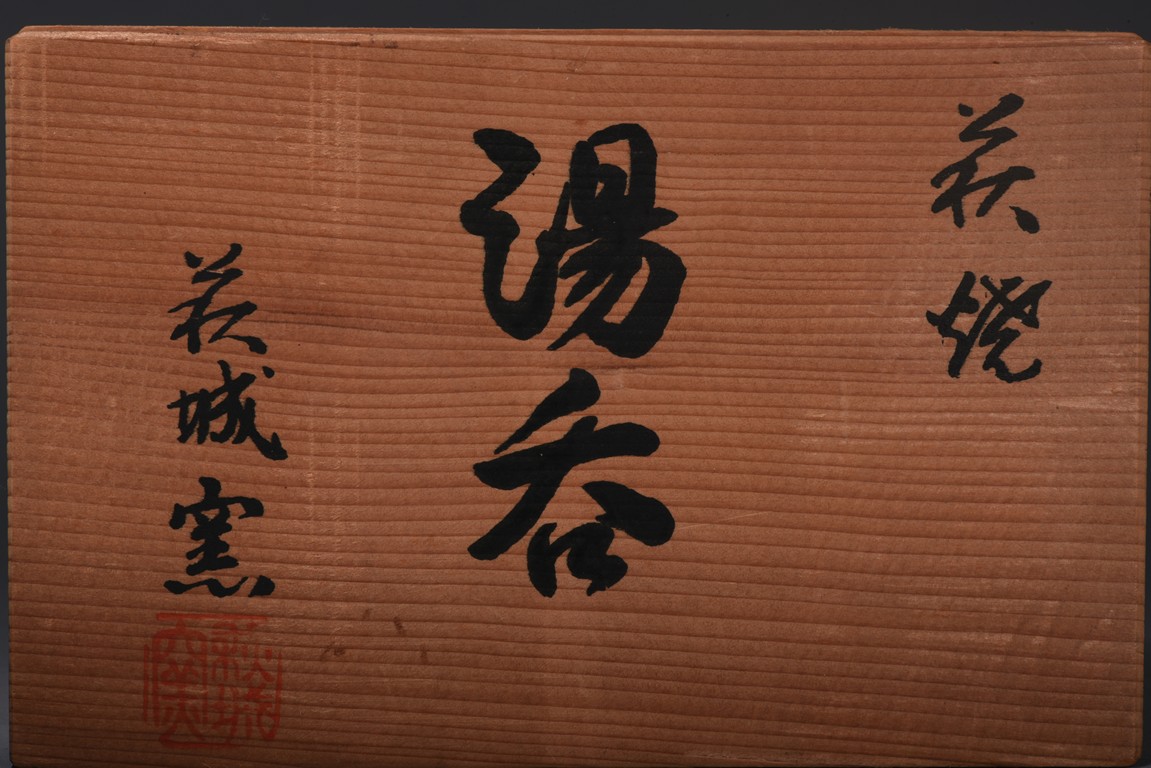 萩焼
湯呑
萩城窯